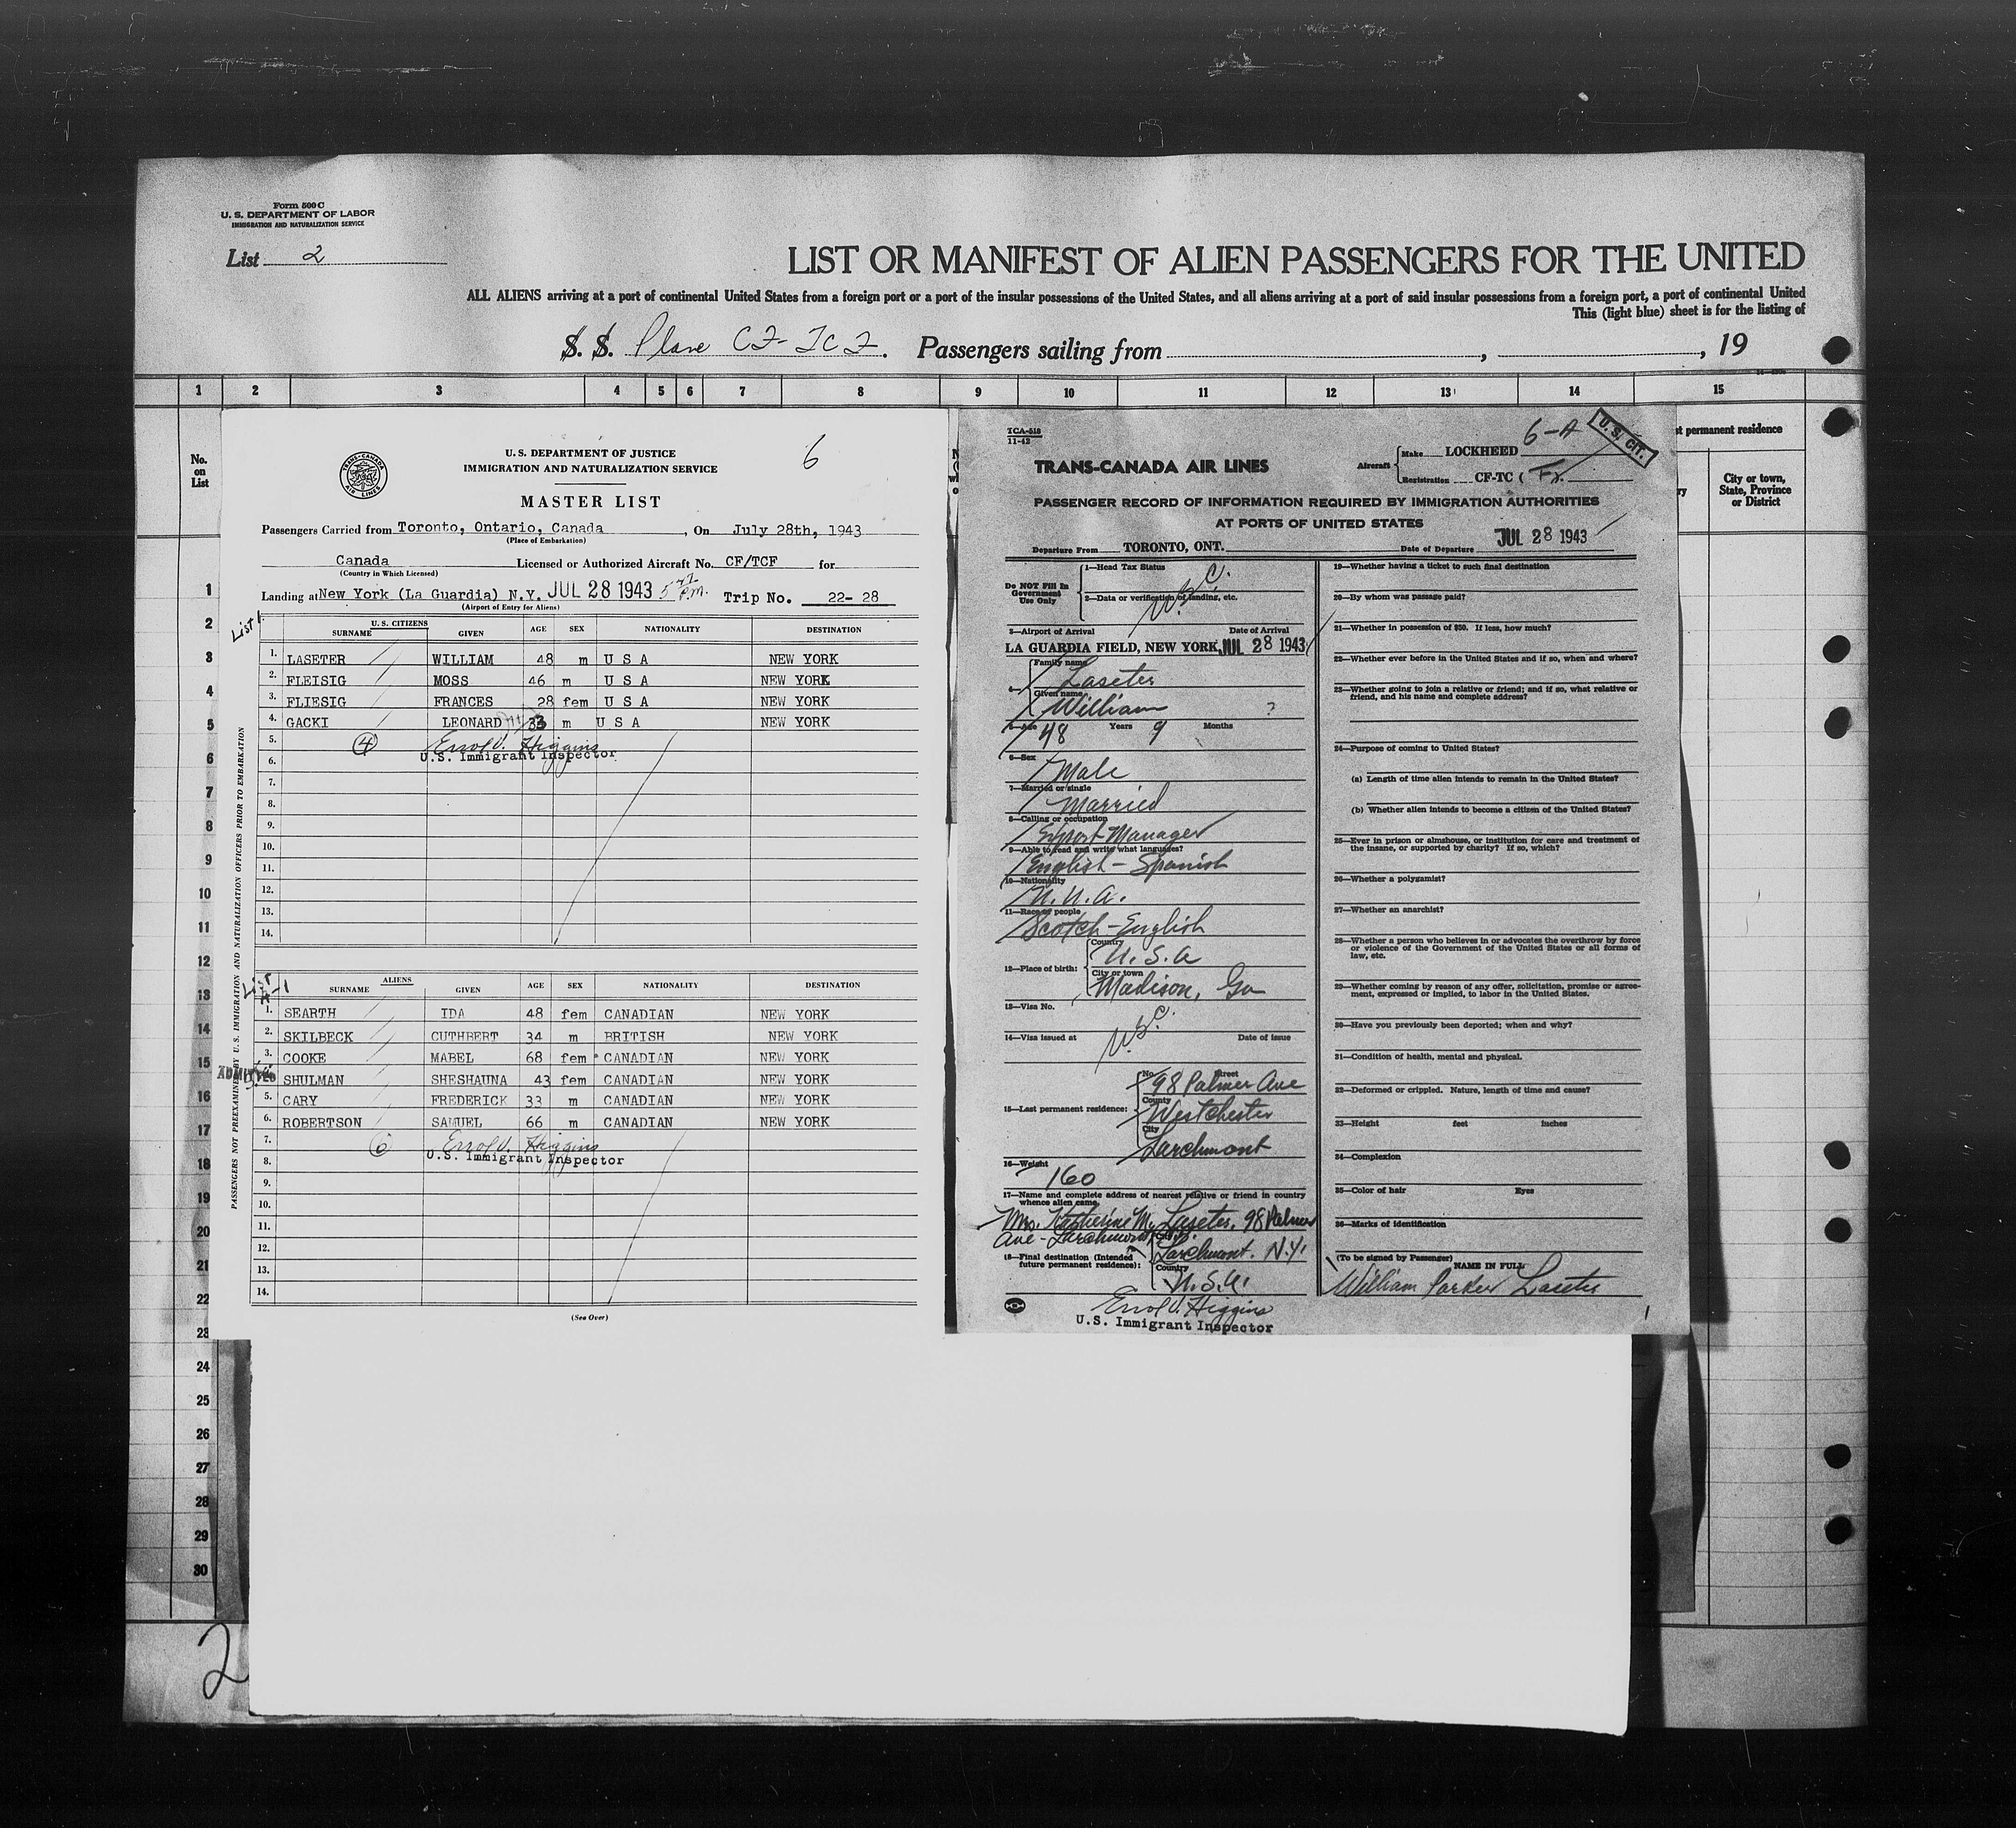 Form 500 C
U. S. DEPARTMENT OF LABOR
IMMIGRATION AND NATURALIZATION SERVICE
List 2
LIST OR MANIFEST OF ALIEN PASSENGERS FOR THE UNITED
ALL ALIENS arriving at a port of continental United States from a foreign port or a port of the insular possessions of the United States, and all aliens arriving at a port of said insular possessions from a foreign port, a port of continental United
This (light blue) sheet is for the listing of
S. S. Plane CF-TCF. Passengers sailing from , , 19
1 2 3 4 5 6 7 8 9 10 11 12 13 14 15
No. on List
t permanent residence
City or town, State, Province or District
1
2
3
4
5
6
7
8
9
10
11
12
13
14
15
16
17
18
19
20
21
22
23
24
25
26
27
28
29
30
2
6
TRANS-CANADA AIR LINES
U. S. DEPARTMENT OF JUSTICE
IMMIGRATION AND NATURALIZATION SERVICE
MASTER LIST
Passengers Carried from Toronto, Ontario, Canada, On July 28th, 1943
(Place of Embarkation)
Canada Licensed or Authorized Aircraft No. CF/TCF for
(Country in Which Licensed)
Landing at New York (La Guardia) N.Y. JUL 28 1943 P.M. Trip No. 22- 28
(Airport of Entry for Aliens)
List 1
PASSENGERS NOT PREEXAMINED BY U. S. IMMIGRATION AND NATURALIZATION OFFICERS PRIOR TO EMBARKATION
U. S. CITIZENS
SURNAME GIVEN AGE SEX NATIONALITY DESTINATION
1. LASETER WILLIAM 48 m U S A NEW YORK
2. FLEISIG MOSS 46 m U S A NEW YORK
3. FLIESIG FRANCES 28 fem U S A NEW YORK
4. GACKI LEONARD 33 m U S A NEW YORK
5. 4 Errol V. Higgins
6. U.S. Immigrant Inspector
7.
8.
9.
10.
11.
12.
13.
14.
List A-1
ALIENS
SURNAME GIVEN AGE SEX NATIONALITY DESTINATION
1. SEARTH IDA 48 fem CANADIAN NEW YORK
2. SKILBECK CUTHBERT 34 m BRITISH NEW YORK
3. COOKE MABEL 68 fem CANADIAN NEW YORK
ADMITTED SHULMAN SHESHAUNA 43 fem CANADIAN NEW YORK
5. CARY FREDERICK 33 m CANADIAN NEW YORK
6. ROBERTSON SAMUEL 66 m CANADIAN NEW YORK
7. 6 Errol V. Higgins
8. U.S. Immigrant Inspector
9.
10.
11.
12.
13.
14.
(See Over)
TCA-518
11-42
6-A
U. S. CIT.
TRANS-CANADA AIR LINES
Aircraft Make LOCKHEED
Registration CF-TC (
PASSENGER RECORD OF INFORMATION REQUIRED BY IMMIGRATION AUTHORITIES
AT PORTS OF UNITED STATES
Departure From TORONTO, ONT. Date of Departure JUL 28 1943
Do NOT Fill In Government Use Only
1—Head Tax Status
U.S.C.
2—Data or verification of landing, etc.
3—Airport of Arrival Date of Arrival
LA GUARDIA FIELD, NEW YORK JUL 28 1943
4—
Family name
Laseter
Given name
William
5—Age 48 Years 9 Months ?
6—Sex
Male
7—Married or single
Married
8—Calling or occupation
Export Manager
9—Able to read and write what languages?
English - Spanish
10—Nationality
U.S.A.
11—Race or people
Scotch-English
12—Place of birth:
Country
U.S.A
City or town
Madison, Ga
13—Visa No.
U.S.C.
14—Visa issued at Date of issue
15—Last permanent residence:
No. Street
98 Palmer Ave
County
Westchester
City
Larchmont
16—Weight
160
17—Name and complete address of nearest relative or friend in country whence alien came
Mrs. Katherine M. Laseter, 98 Palmer
Ave - Larchmont
18—Final destination (Intended future permanent residence):
City
Larchmont. N.Y.
Country
U.S.A.
Errol V. Higgins
U.S. Immigrant Inspector
19—Whether having a ticket to such final destination
20—By whom was passage paid?
21—Whether in possession of $50. If less, how much?
22—Whether ever before in the United States and if so, when and where?
23—Whether going to join a relative or friend; and if so, what relative or friend, and his name and complete address?
24—Purpose of coming to United States?
(a) Length of time alien intends to remain in the United States?
(b) Whether alien intends to become a citizen of the United States?
25—Ever in prison or almshouse, or institution for care and treatment of the insane, or supported by charity? If so, which?
26—Whether a polygamist?
27—Whether an anarchist?
28—Whether a person who believes in or advocates the overthrow by force or violence of the Government of the United States or all forms of law, etc.
29—Whether coming by reason of any offer, solicitation, promise or agreement, expressed or implied, to labor in the United States.
30—Have you previously been deported; when and why?
31—Condition of health, mental and physical.
32—Deformed or crippled. Nature, length of time and cause?
33—Height feet inches
34—Complexion
35—Color of hair Eyes
36—Marks of identification
(To be signed by Passenger)
NAME IN FULL
William Parker Laseter